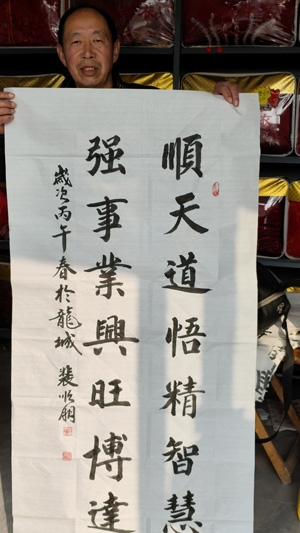 順天道悟精智慧
强事業興旺博達
歲次丙午春於龍城 裴順朋